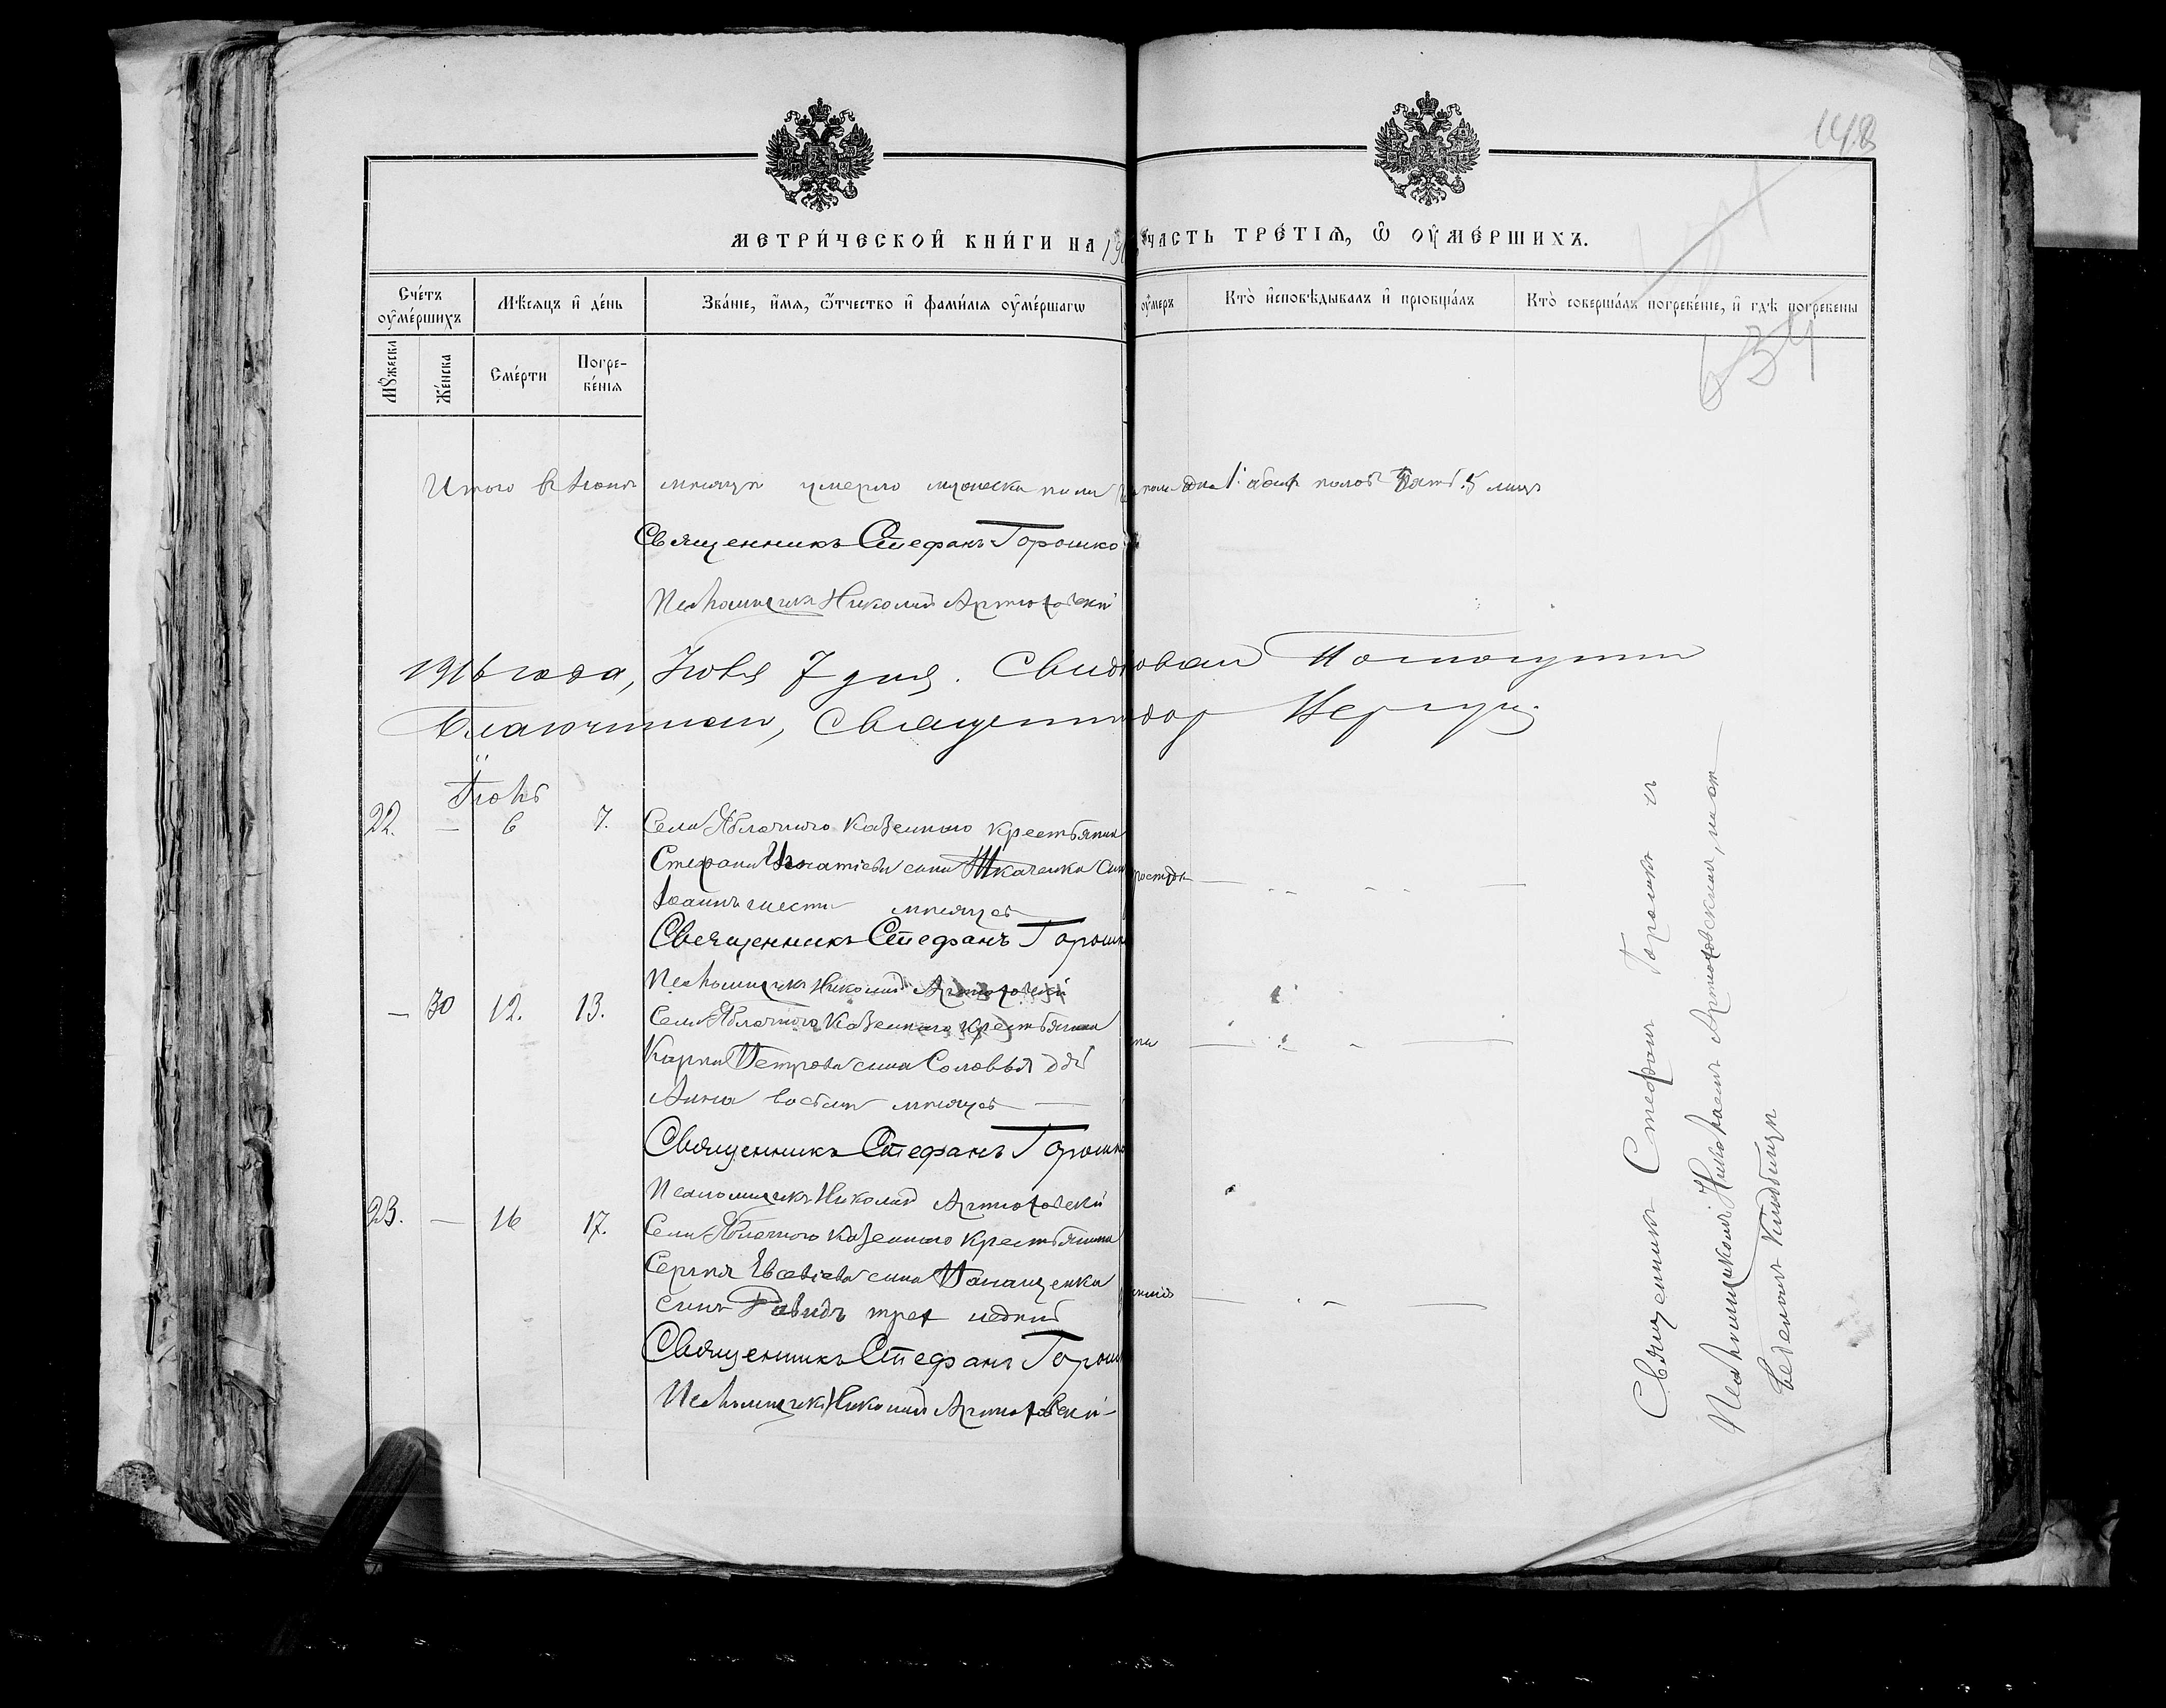 148
МЕТРИ́ЧЕСКОЙ КНИ́ГИ НА 191 ЧАСТЬ ТРЕ́ТІѦ, Ѡ ОУМЕ́РШИХЪ.
Сче́тъ оумершихъ
Мѣсяцъ и де́нь
Зва́ніе, и́мя, ѻтчество и фами́лія оуме́ршагѡ
оумеръ
Кто̀ исповѣ́дывалъ и пріобща́лъ
Кто̀ соверша́лъ погребе́ніе, и гдѣ̀ погребены
Мꙋжеска
Же́нска
Сме́рти
Погребе́нія
634
Итого въ Іюнѣ мѣсяцѣ умерло мужеска пола пола одна 1. обоих полов пять 5 лицъ
Священникъ Стефанъ Горошко
Псаломщикъ Николай Артюховскій
1916 года, Іюля 7 дня.
Благочинный, Священник
Іюль
22. — 6 7. Села Яблочного казенного крестьянина
Стефана Игнатіева сына Ткаченка сын
Іоаннъ шести мѣсяцев
Священникъ Стефанъ Горошк
Псаломщикъ Николай Артюховскій
— 30 12. 13. Села Яблочного казенного крестьянина
Карпа Петрова сына Соловья дочь
Анна восьми мѣсяцев —
Священникъ Стефанъ Горошко
Псаломщикъ Николай Артюховскій
23. — 16 17. Села Яблочного казенного крестьянина
Сергѣя Евсевіева сына Панащенка
сынъ Давидъ трех недѣль
Священникъ Стефанъ Горош
Псаломщикъ Николай Артюховскій
Священникъ Стефан Горошко съ
Псаломщиком Николаем Артюховским, на от
веденом кладбищѣ